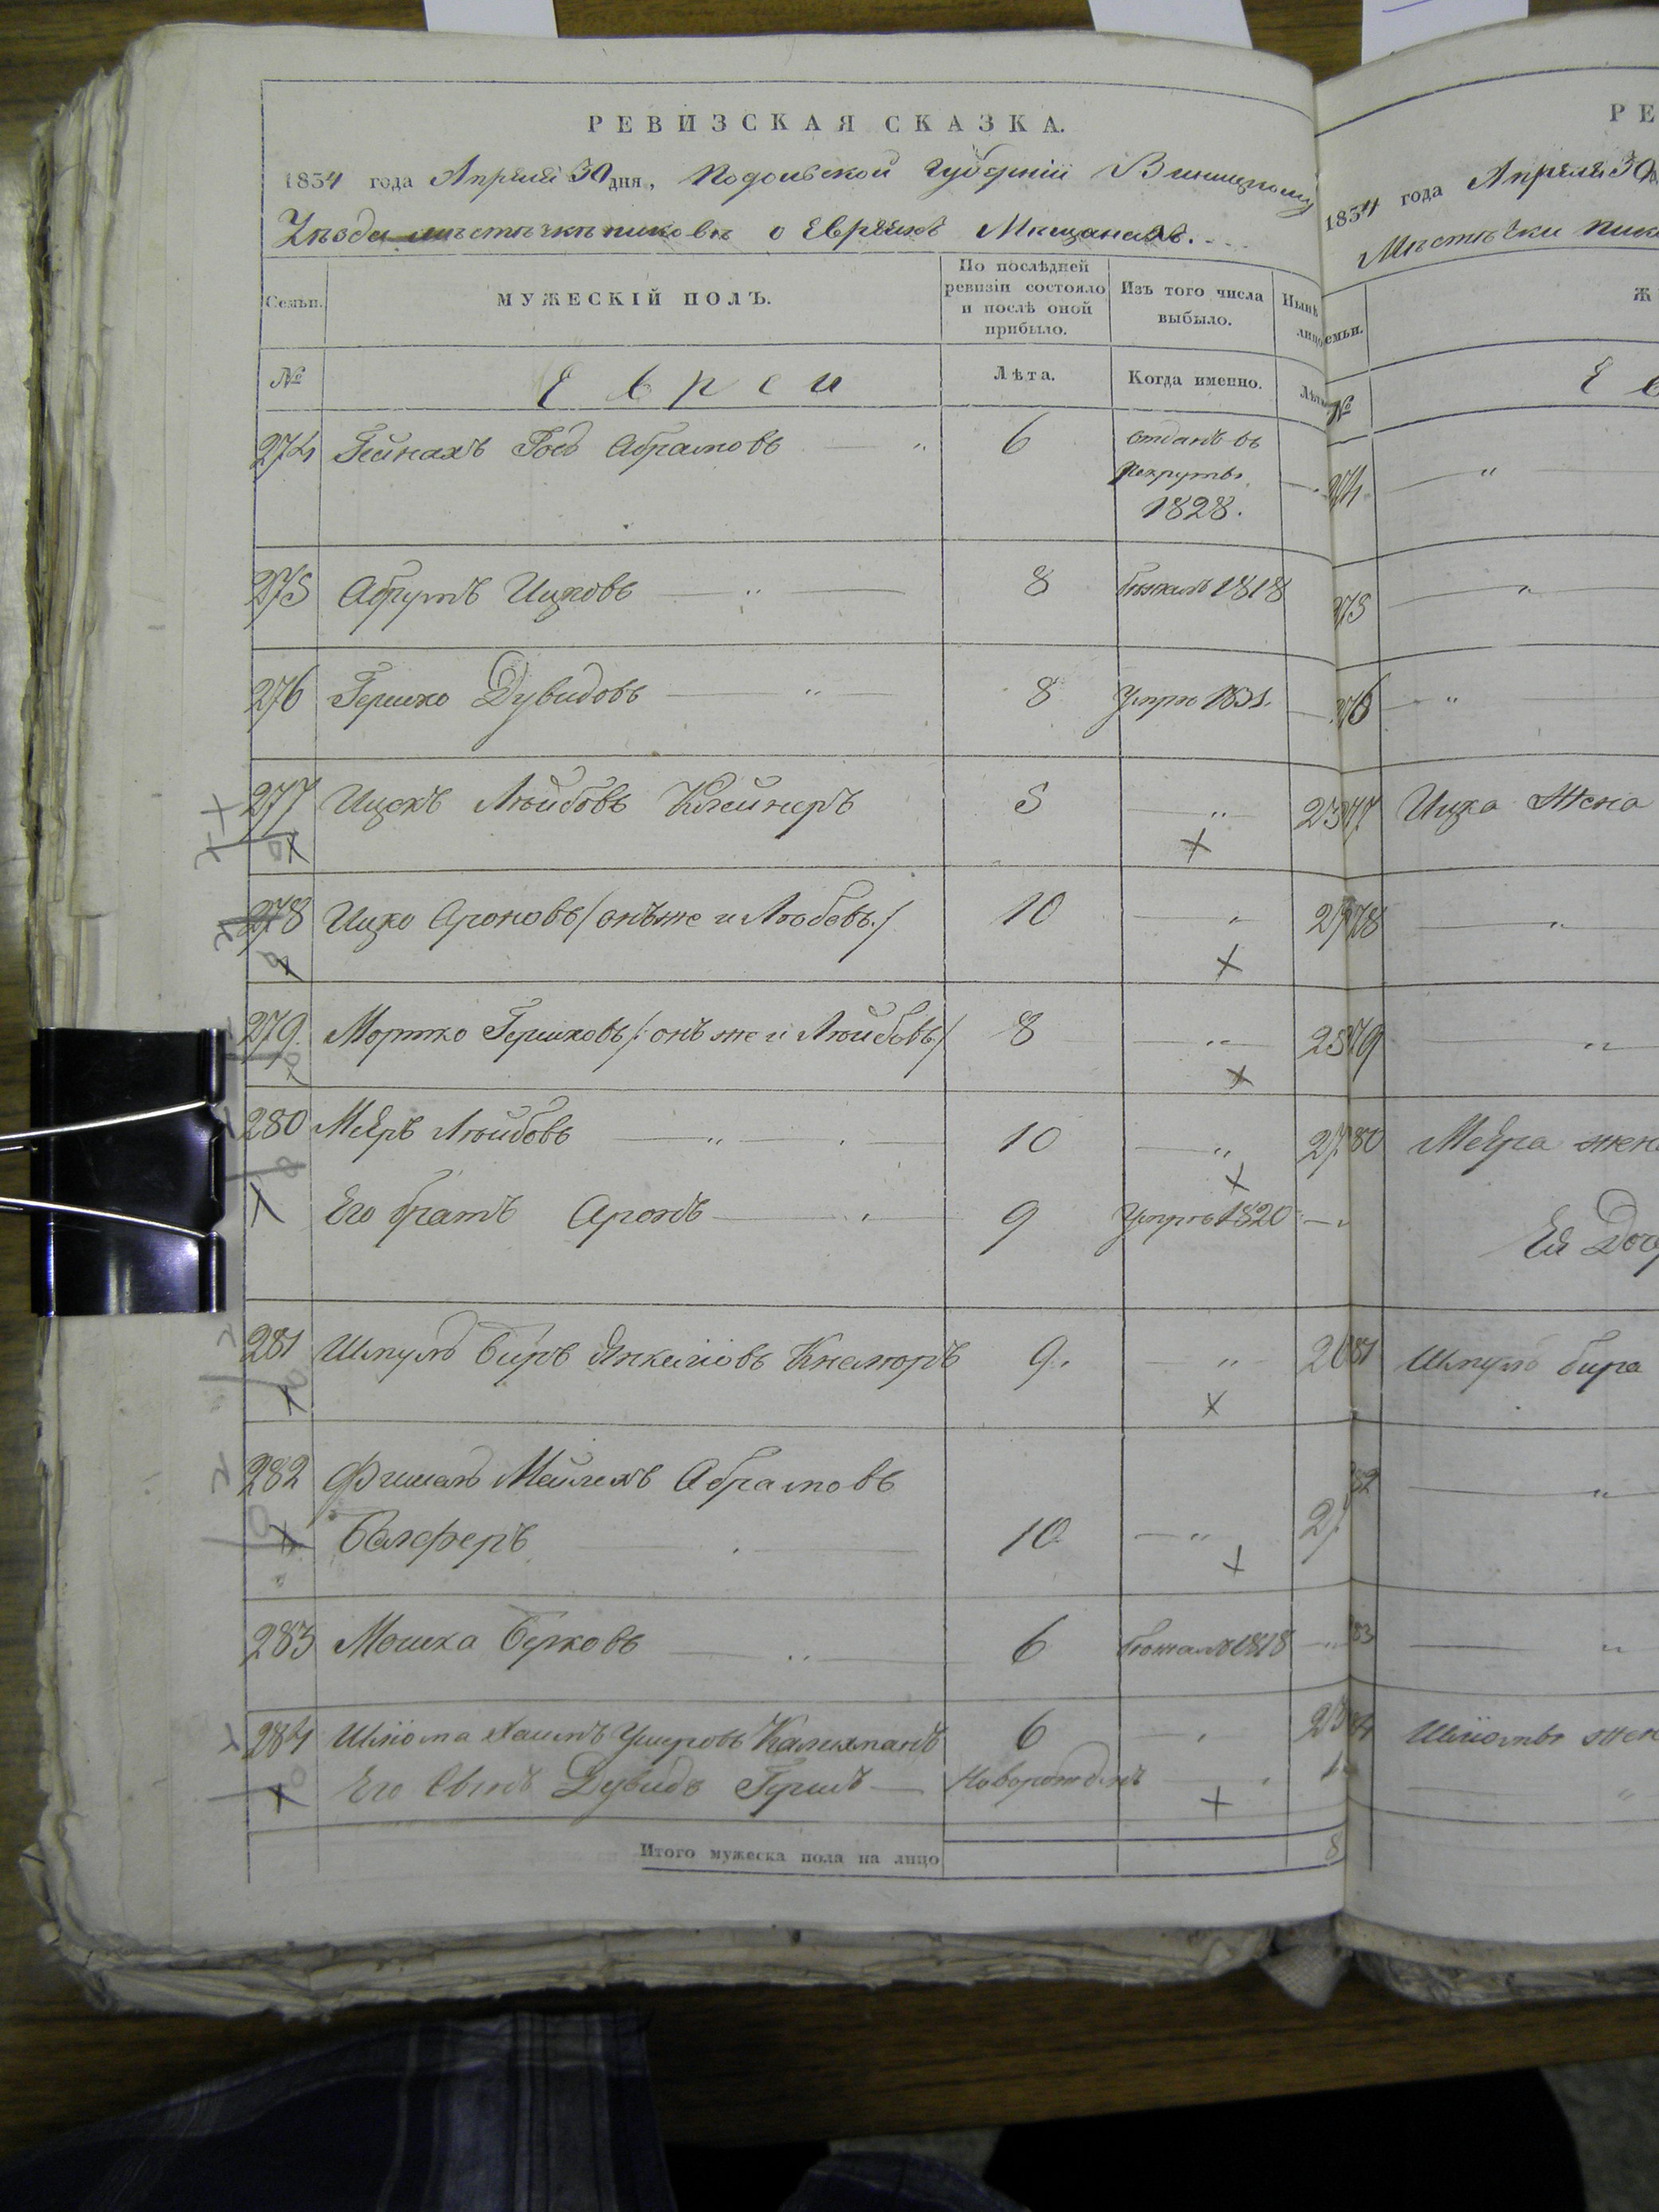 РЕВИЗСКАЯ СКАЗКА.
1834 года Апреля 30 дня, Подольской Губерніи Винницкому
Уезда местечке пикове о Евреяхъ Мещанахъ.
Семьи. МУЖЕСКІЙ ПОЛЪ. По послѣдней ревизіи состояло и послѣ оной прибыло. Изъ того числа выбыло. Нынѣ на лицо
№ Евреи Лѣта. Когда именно. Лѣта
274 Гейнахъ Абрамовъ — " 6 отданъ въ
рекруты
1828.
275 Ицковъ — " — 8 бежалъ 1818
276 Гершко Дувидовъ — " — 8 Умре 1831.
277 Ицекъ Лейбовъ Клейнеръ 5 — " — 23
278 Ицко Ароновъ /онъ же и Любовъ./ 10 — " 27
279. Мортко Гершковъ /: онъ же и Лейбовъ/ 8 — " — 25
280 Меяръ Лейбовъ — " — 10 — " 27
Его братъ Аронъ — " — 9 Умре 1820 — "
281 Шмуль Беръ Янкелювъ 9. — " — 26
282 Фишель Мейлехъ Абрамовъ
Балферъ — . — 10 — " 27
283 Мошка Берковъ — " — 6 бежалъ 1818 — "
284 Шлома Хаимъ Ушеровъ Калихманъ 6 — " 23
Его Сынъ Дувидъ Гершъ — Новорожденъ — " 1
Итого мужеска пола на лицо 8
РЕ
1834 года Апреля 30
Местечки пик
емьи. Ж
№ Е в
274 — "
275 — "
276 — "
277 Ицка жена
278 — "
279 — "
280 Меяра жен
Ея Доч
281 Шмуль бера
282 — "
283 — "
284 Шломы жен